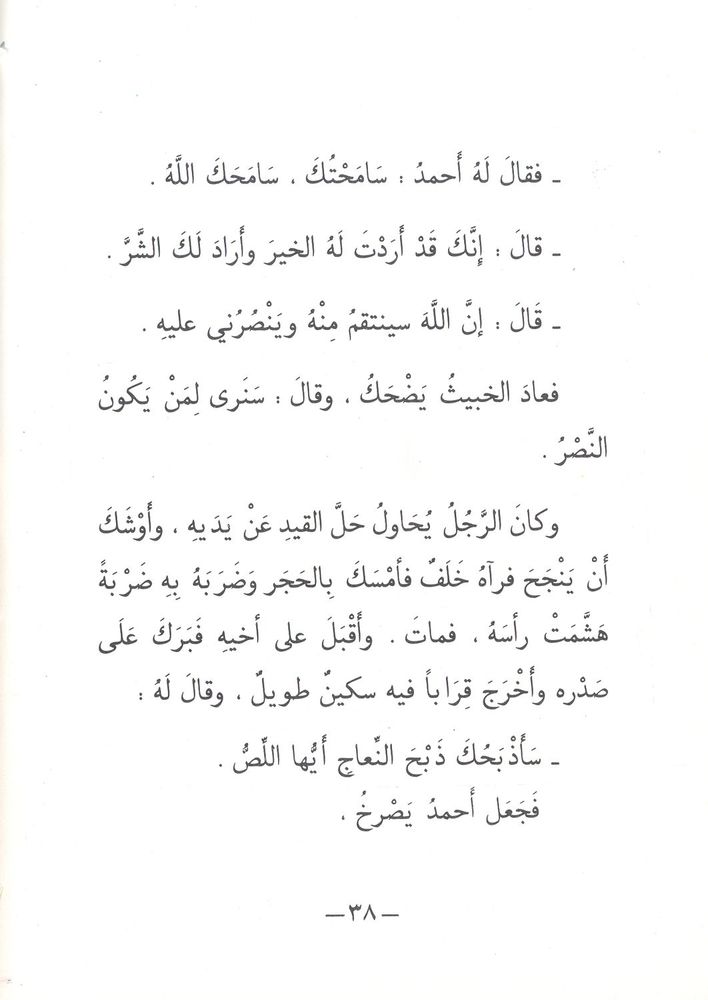 ـ فقالَ لَهُ أَحمدُ : سَامَحْتُكَ ، سَامَحَكَ اللَّهُ .
ـ قالَ : إِنَّكَ قَدْ أَرَدْتَ لَهُ الخيرَ وأَرَادَ لَكَ الشَّرَّ .
ـ قَالَ : إنَّ اللَّهَ سينتقمُ مِنْهُ ويَنْصُرُني عليهِ .
فعادَ الخبيثُ يَضْحَكُ ، وقالَ : سَنَرى لِمَنْ يَكُونُ
النَّصْرُ .
وكانَ الرَّجُلُ يُحَاولُ حَلَّ القيدِ عَنْ يَدَيهِ ، وأَوْشَكَ
أَنْ يَنْجَحَ فرآهُ خَلَفٌ فأمْسَكَ بِالحَجَر وَضَرَبَهُ بِهِ ضَرْبَةً
هَشَّمَتْ رأسَهُ ، فماتَ . وأَقْبَلَ على أخيهِ فَبَرَكَ عَلَى
صَدْره وأَخْرَجَ قِرَاباً فيه سكينٌ طويلٌ ، وقالَ لَهُ :
ـ سَأَذْبَحُكَ ذَبْحَ النِّعاجِ أَيُّها اللِّصُّ .
فَجَعَل أَحمدُ يَصْرخُ ،
—٣٨—